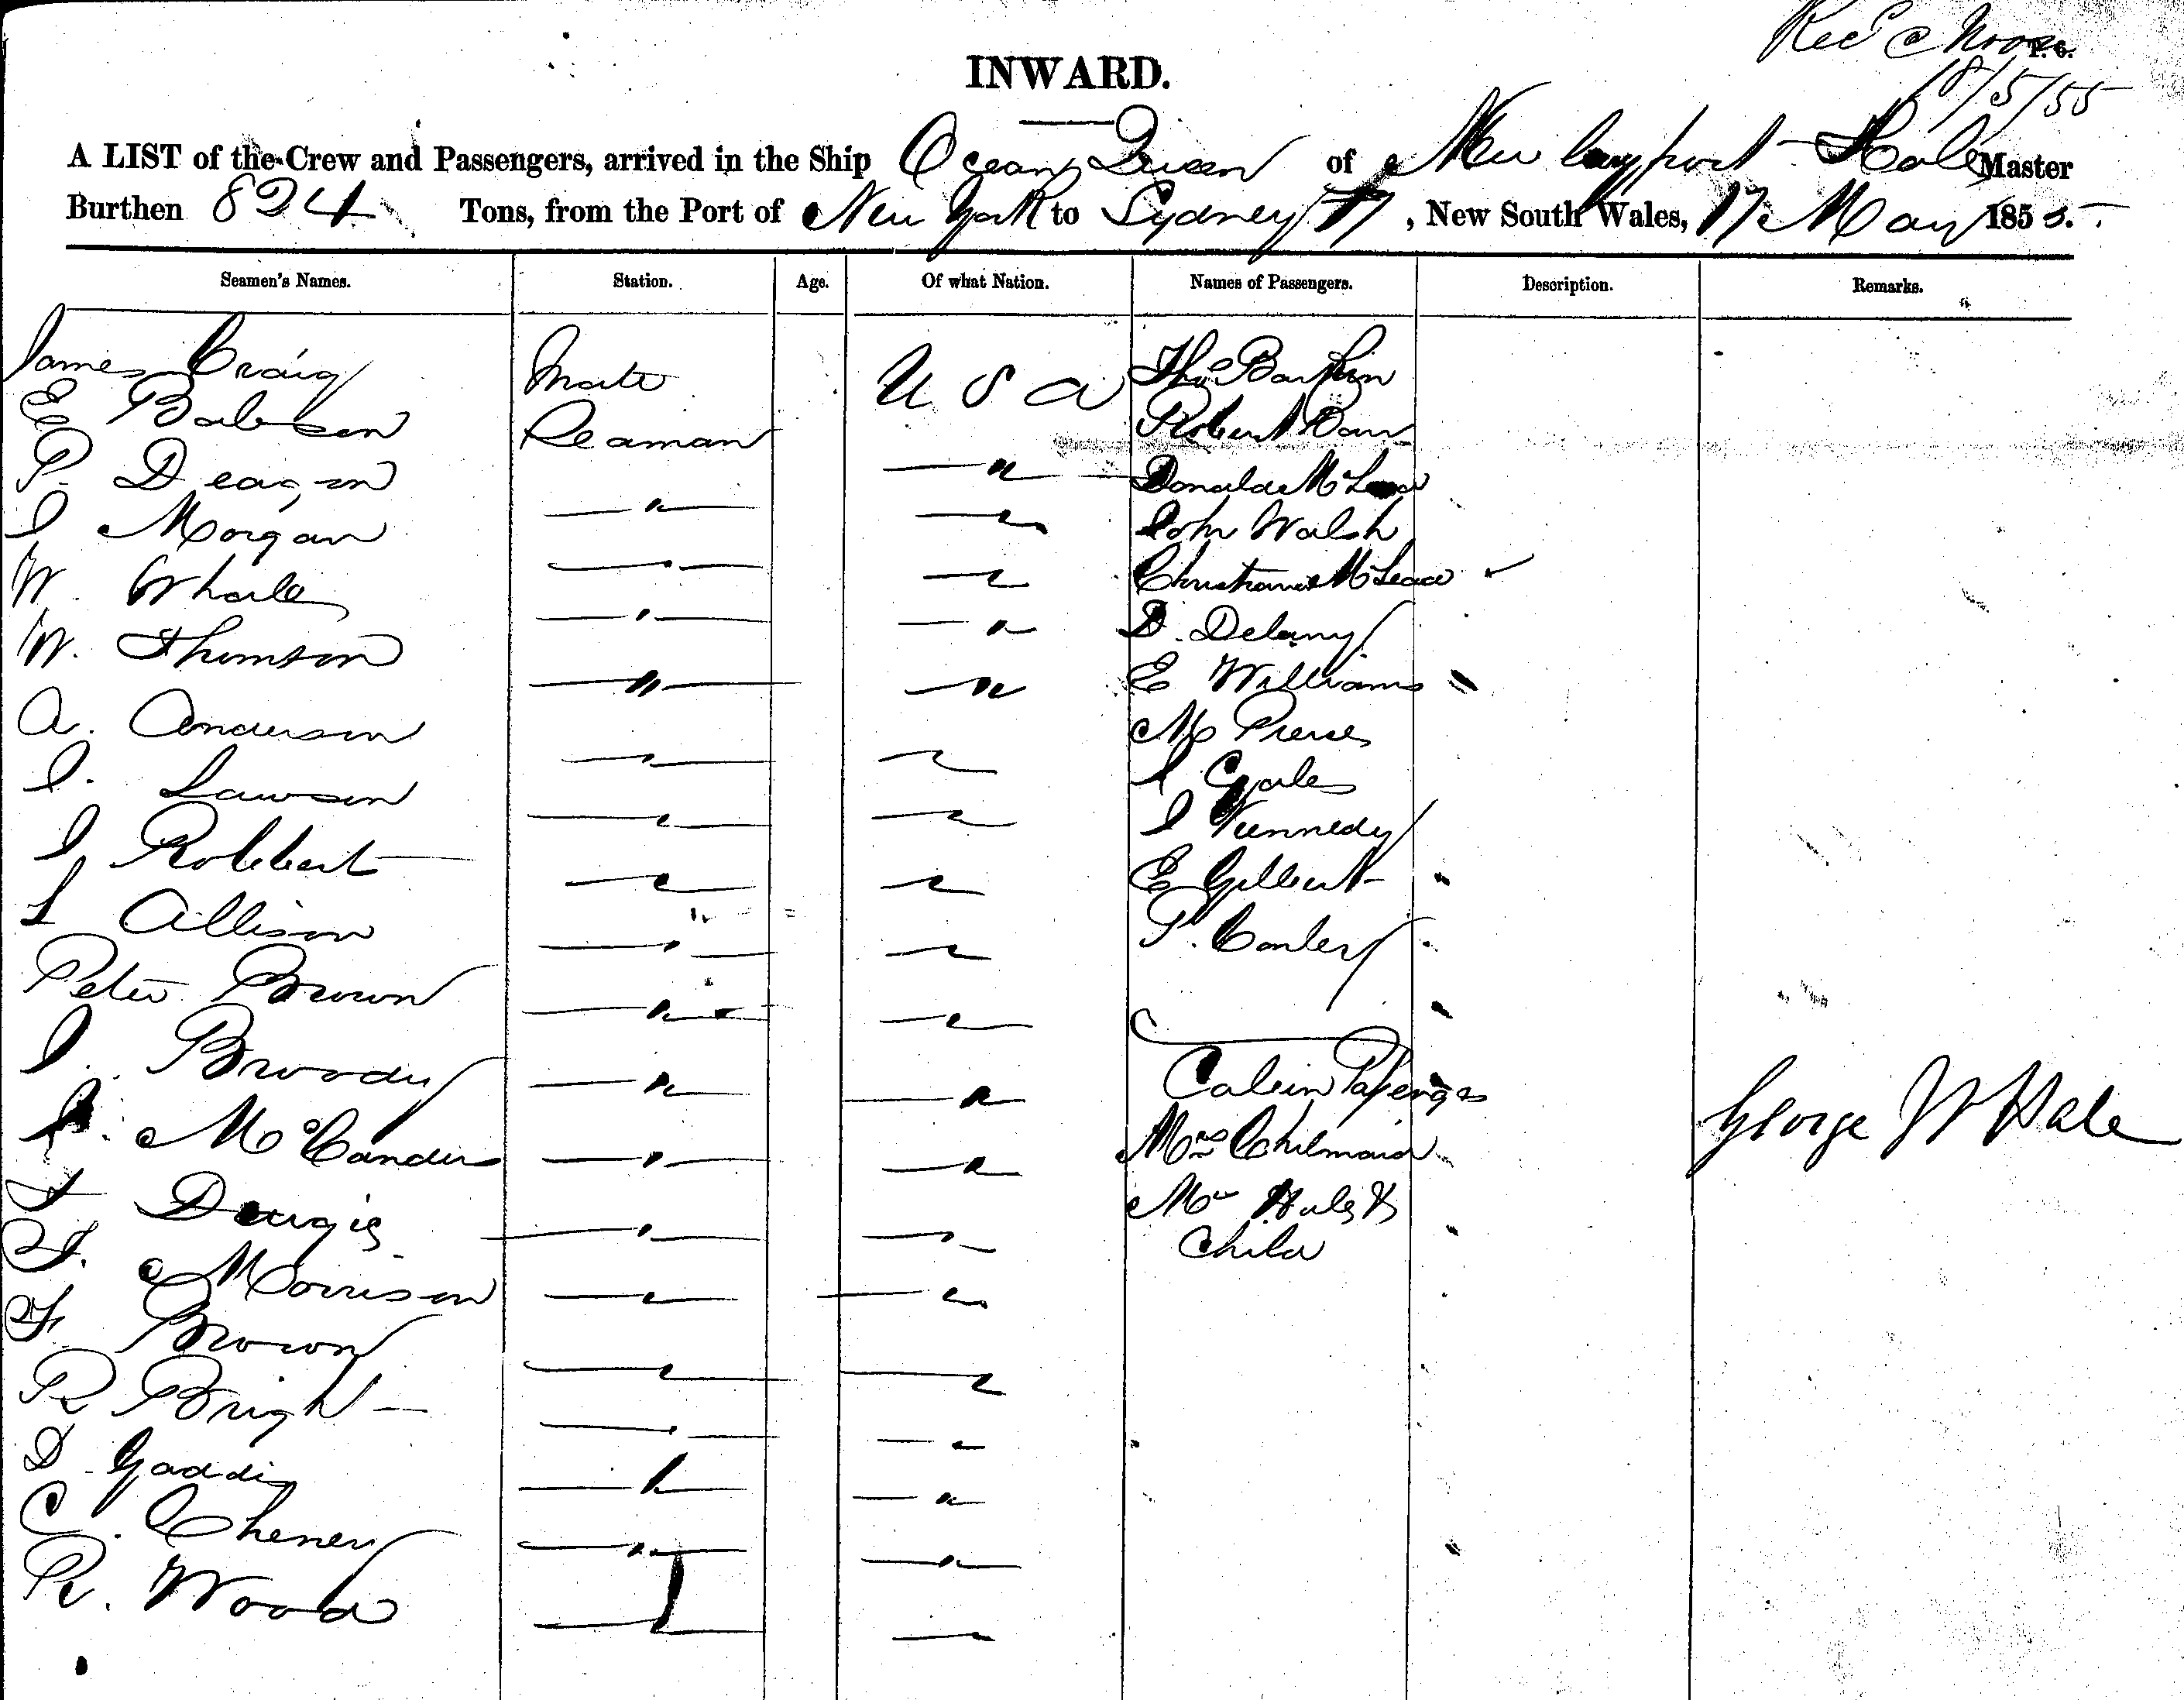 Rec @ Noon
P. C.
18/5/55
INWARD.
A LIST of the Crew and Passengers, arrived in the Ship Ocean Queen of Newburyport Hale Master
Burthen 824 Tons, from the Port of New York to Sydney, New South Wales, 17 May 1855.
Seamen's Names. Station. Age. Of what Nation. Names of Passengers. Description. Remarks.
James Craig Mate U S A Thos
E Seaman Robert
P. Deagon " " Donald McLeod
J Morgan " " John Walsh
W. " " McLeod
W. Thomson " " D. Delany
A. Anderson " " E Williams
J. Lawson " " M Pierce
J Robbert " " J Gales
L Allison " " J Kennedy
Peter Brown " " E Gilbert
J. Broody " " P. Conley
McCanders " " Cabin Passengers
" " Mrs Chilmaid
F. Morrison " " Mrs Hale &
F. Brown " " Child
R Bright " "
D Gaddis " "
C. Cheney " "
R. Wood " "
George W Hale